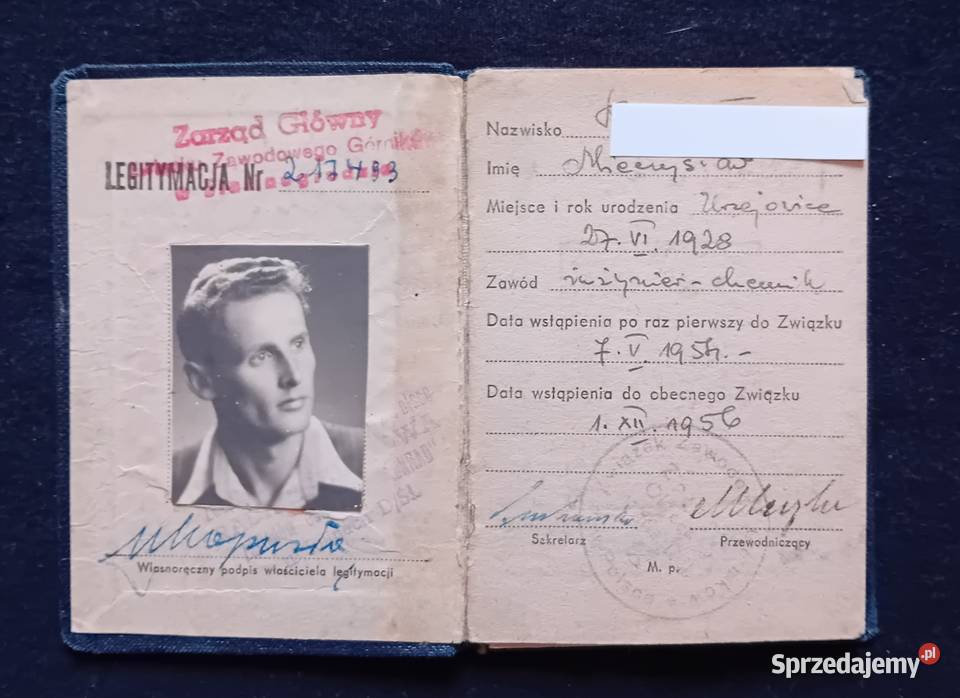 Zarząd Główny
Zawodowego Górników
LEGITYMACJA Nr 217493
Własnoręczny podpis właściciela legitymacji
Nazwisko
Imię Mieczysław
Miejsce i rok urodzenia Urzejowice
27. VI. 1928
Zawód inżynier-chemik
Data wstąpienia po raz pierwszy do Związku
7. V. 1954. -
Data wstąpienia do obecnego Związku
1. XII. 1956
Sekretarz
Przewodniczący
M. p.
Sprzedajemy.pl